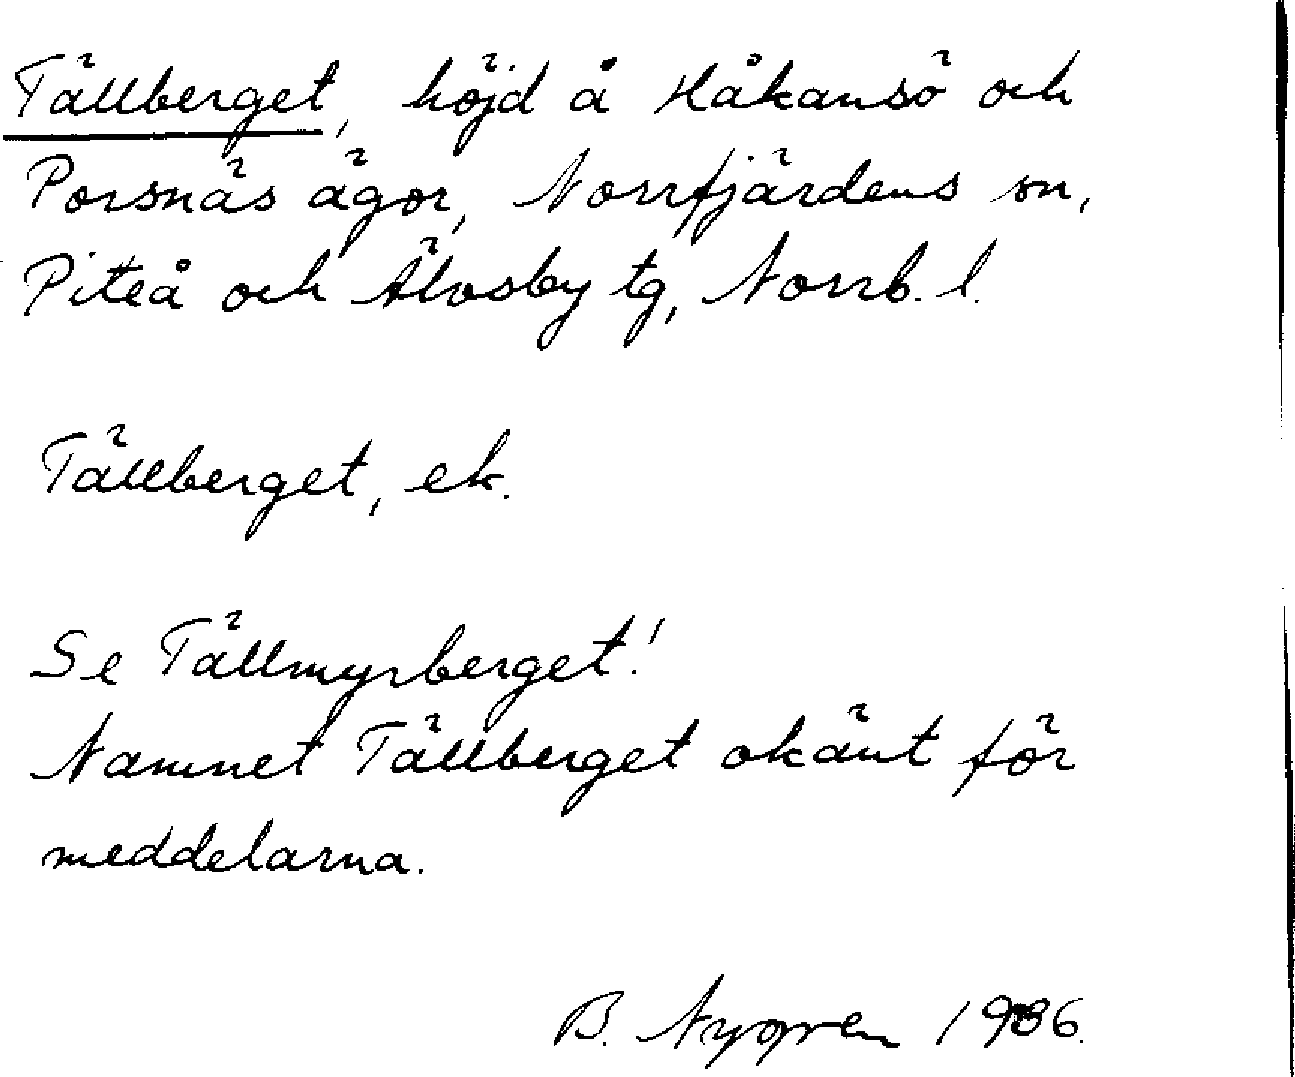 Tällberget, höjd å Håkansö och
Porsnäs ägor, Norrfjärdens sn,
Piteå och Älvsby tg, Norrb. l.
Tällberget, ek.
Se Tällmyrberget!
Namnet Tällberget okänt för
meddelarna.
B. Nygren 1986.